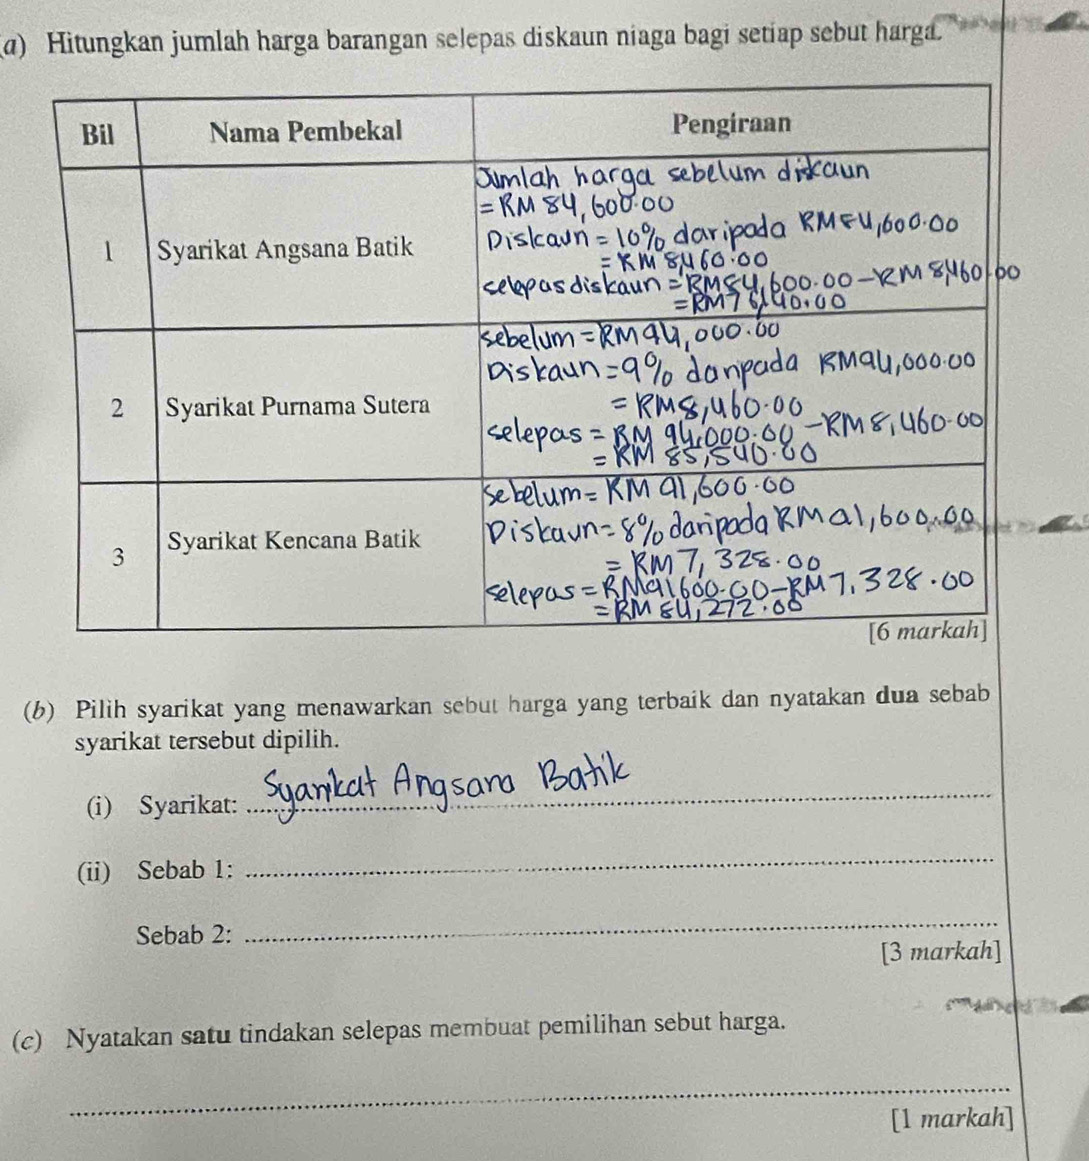 (a) Hitungkan jumlah harga barangan selepas diskaun niaga bagi setiap sebut harga.
Bil Nama Pembekal Pengiraan
1 Syarikat Angsana Batik
Jumlah harga sebelum diskaun
= RM 84,600.00
Diskaun = 10% daripada RM84,600.00
= RM 8,460.00
selepas diskaun = RM84,600.00 - RM 8,460.00
= RM76,140.00
2 Syarikat Purnama Sutera
sebelum = RM94,000.00
Diskaun = 9% daripada RM94,000.00
= RM8,460.00
selepas = RM 94,000.00 - RM 8,460.00
= RM 85,540.00
3 Syarikat Kencana Batik
sebelum = RM 91,600.00
Diskaun = 8% daripada RM91,600.00
= RM 7,328.00
selepas = RM91600.00 - RM7,328.00
= RM 84,272.00
[6 markah]
(b) Pilih syarikat yang menawarkan sebut harga yang terbaik dan nyatakan dua sebab
syarikat tersebut dipilih.
(i) Syarikat: Syarikat Angsana Batik
(ii) Sebab 1:
Sebab 2:
[3 markah]
(c) Nyatakan satu tindakan selepas membuat pemilihan sebut harga.
[1 markah]